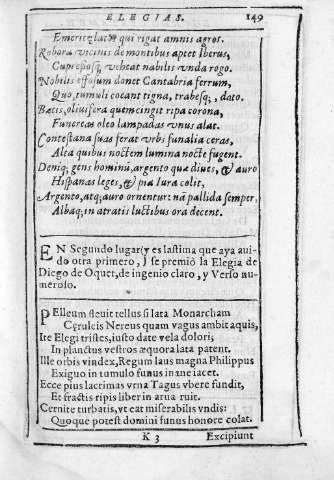 ELEGIAS. 149
Emeritę latos qui rigat amnis agros.
Robora vicinis de montibus aptet Iberus,
Cupresosq; vehat nabilis vnda rogo.
Nobilis effosum donet Cantabria ferrum,
Quo, tumuli coeant tigna, trabesq;, dato.
Bætis, oliuifera quem cingit ripa corona,
Funereas oleo lampadas vnus alat.
Contestana suas ferat vrbs funalia ceras,
Alta quibus noctem lumina nocte fugent.
Deniq; gens hominũ, argento quæ diues, & auro
Hispanas leges, & pia iura colit,
Argento, atq; auro ornentur: nã pallida semper,
Albaq; in atratis luctibus ora decent.
EN Segundo lugar (y es lastima que aya aui-
do otra primero,) se premiò la Elegia de
Diego de Oquet, de ingenio claro, y Verso nu-
meroso.
PElleum fleuit tellus si lata Monarcham
Cęruleis Nereus quam vagus ambit aquis,
Ite Elegi tristes, iusto date vela dolori;
In planctus vestros æquora lata patent.
Ille orbis vindex, Regum laus magna Philippus
Exiguo in tumulo funus inane iacet.
Ecce pius lacrimas vrna Tagus vbere fundit,
Et fractis ripis liber in arua ruit.
Cernite turbatis, vt eat miserabilis vndis:
Quoque potest domini funus honore colat.
K 3 Excipiunt